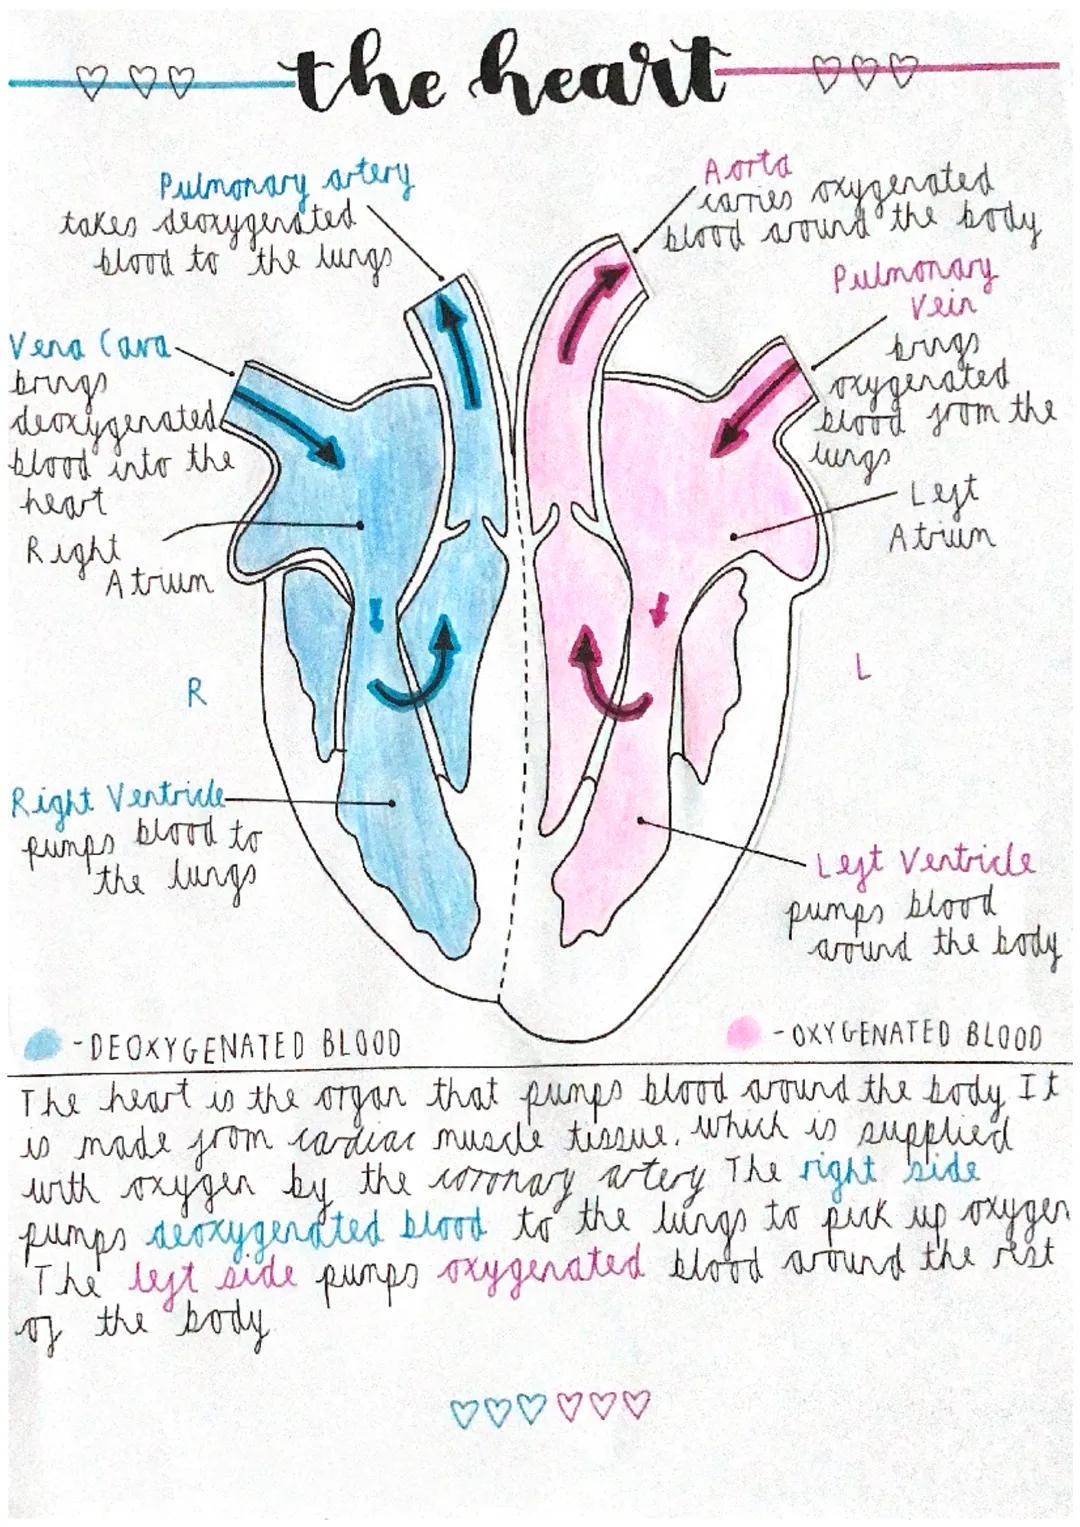 the heart
Pulmonary artery
takes deoxygenated
blood to the lungs
Aorta
carries oxygenated
blood around the body
Pulmonary
Vein
brings
oxygenated
blood from the
lungs
Vena Cava
brings
deoxygenated
blood into the
heart
Right
Atrium
Left
Atrium
R
L
Right Ventricle
pumps blood to
the lungs
Left Ventricle
pumps blood
around the body
-DEOXYGENATED BLOOD
-OXYGENATED BLOOD
The heart is the organ that pumps blood around the body It
is made from cardiac muscle tissue, which is supplied
with oxygen by the coronary artery The right side
pumps deoxygenated blood to the lungs to pick up oxygen
The left side pumps oxygenated blood around the rest
of the body